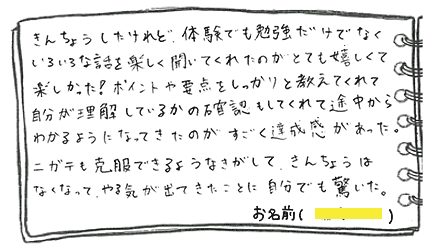 きんちょうしたけれど、体験でも勉強だけでなく
いろいろな話を楽しく聞いてくれたのがとても嬉しくて
楽しかった！ポイントや要点をしっかりと教えてくれて
自分が理解しているかの確認もしてくれて途中から
わかるようになってきたのがすごく達成感があった。
ニガテも克服できるようなきがして、きんちょうは
なくなって、やる気が出てきたことに自分でも驚いた。
お名前( )